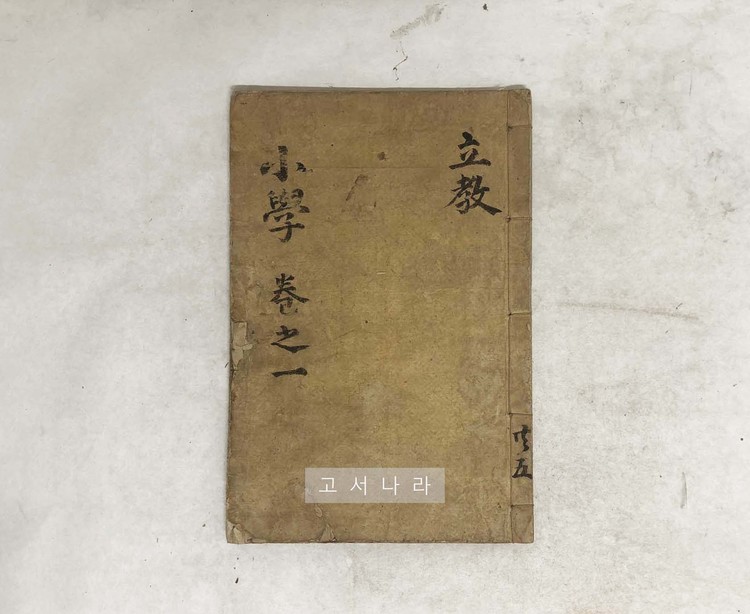 立教
小學 卷之一
共五
고서나라